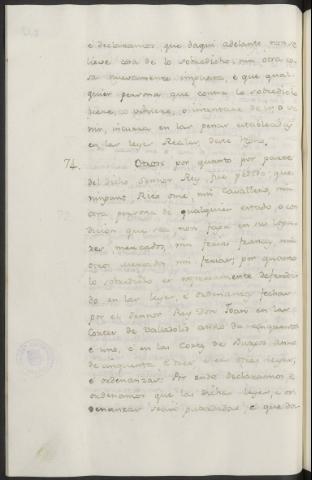 e declaramos, que daqui adelante non se
lieve cosa de lo sobredicho, nin otra co
sa nuevamente impuesta, e que qual
quier persona que contra lo sobredicho
fuere,
nir, incurra en las penas establecidas
en las leyes Reales deste Reino.
74. Otrosi por quanto por parte
del dicho Sennor Rey fue pedido, que
ninguno Rico ome, nin Cavallero, nin
otra persona de qualquier estado, o con
dicion que sea non faga en sus logar
res mercados, nin ferias francas, nin
otros mercados, nin ferias; por quanto
lo sobredicho es expresamente defendi
do en las leyes, e ordenanzas fechas
por el Sennor Rey Don Joan en las
Cortes de Valladolid anno de cinquenta
e uno, e en las Cortes de Burgos anno
de cinquenta e tres e en otras leyes,
e ordenanzas: Por ende declaramos e
ordenamos que las dichas leyes, e or
denanzas sean guardadas, e que da